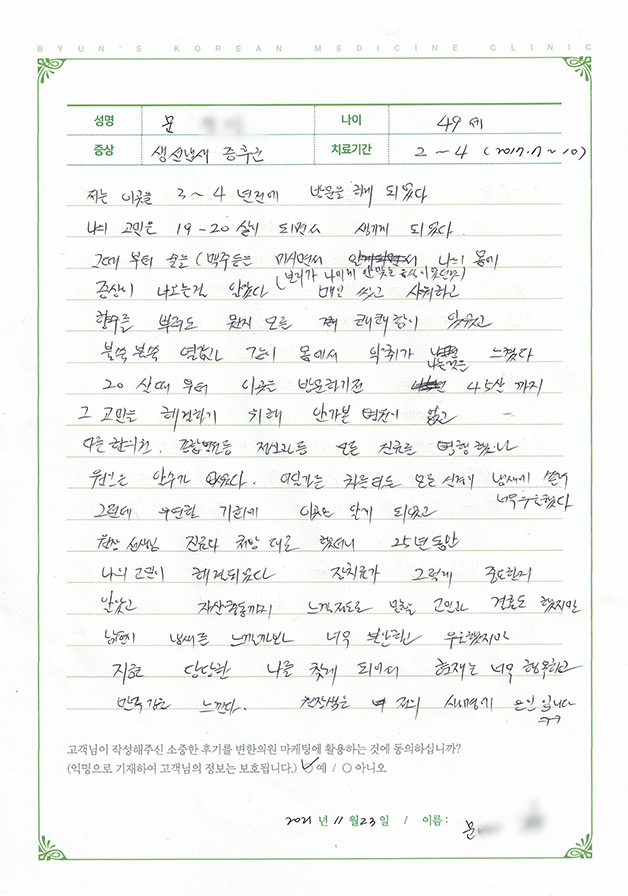 BYUN'S KOREAN MEDICINE CLINIC
성명 문 나이 49세
증상 생선냄새 증후군 치료기간 2~4 (2017.7~10)
저는 이곳을 3~4년전에 방문을 하게 되었다
나의 고민은 19-20살이 되면서 생기게 되었다
그때부터 술을 (맥주등을 마시면서 나의 몸에
증상이 나오는걸 알았다 (보리가 나에게 안맞는 음식이었었다) 매일 씻고 샤워하고
향수를 뿌려도 뭔지 모를 퀘퀘함이 있었고
불쑥불쑥 역겹고 같이 몸에서 악취가 나는것을 느꼈다
20살때부터 이곳을 방문하기전 45살까지
그 고민을 해결하기 위해 안가본 병원이 없고
다른 한의원, 종합병원등 정신과등 모든 진료를 병행했으나
원인은 알수가 없었다. 어딜가든 모든 신경이 냄새에 쏠려 너무 우울했다
그런데 우연한 기회에 이곳을 알게 되었고
원장 선생님 진료와 처방대로 했더니 25년동안
나의 고민이 해결되었다 그렇게 중요한지
알았고 자살충동까지 느낄정도로 고민과 결혼도 했지만
남편이 냄새를 느낄까봐 너무 불안하고 우울했지만
지금은 당당한 나를 찾게 되어서 현재는 너무 행복하고
만족감을 느낀다. 원장님은 저의 생명의 은인입니다
고객님이 작성해주신 소중한 후기를 변한의원 마케팅에 활용하는 것에 동의하십니까?
(익명으로 기재하여 고객님의 정보는 보호됩니다.) ○ 예 / ○ 아니오
2021 년 11 월 23 일 / 이름 : 문